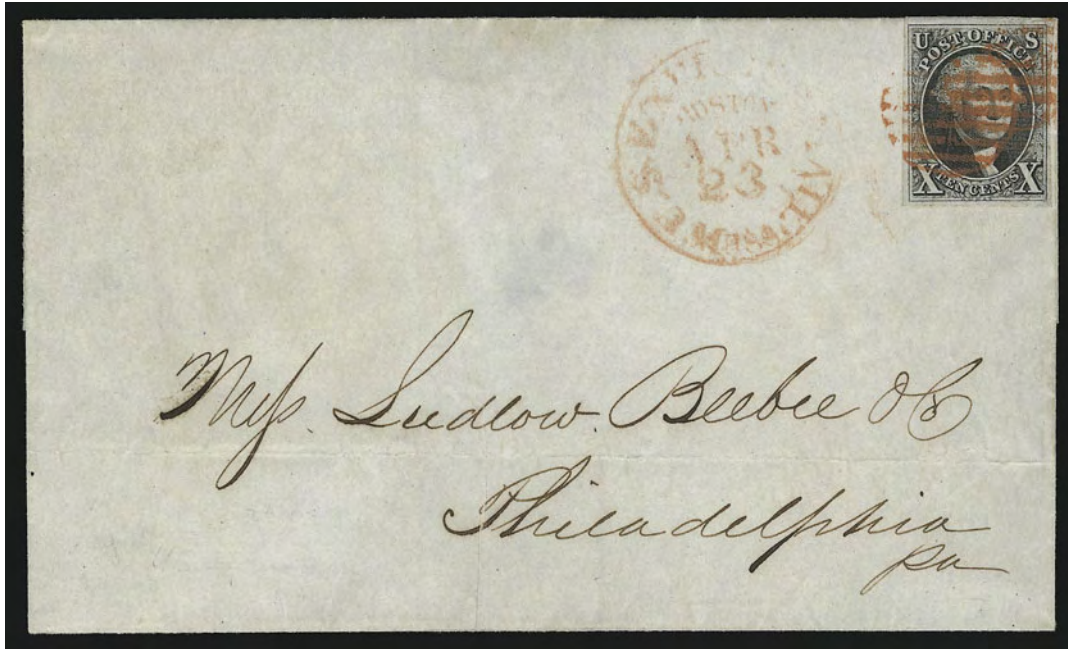 U S
POST OFFICE
X TEN CENTS X
BOSTON
APR
23
Mess Ludlow Beebee & Co
Philadelphia
Pa